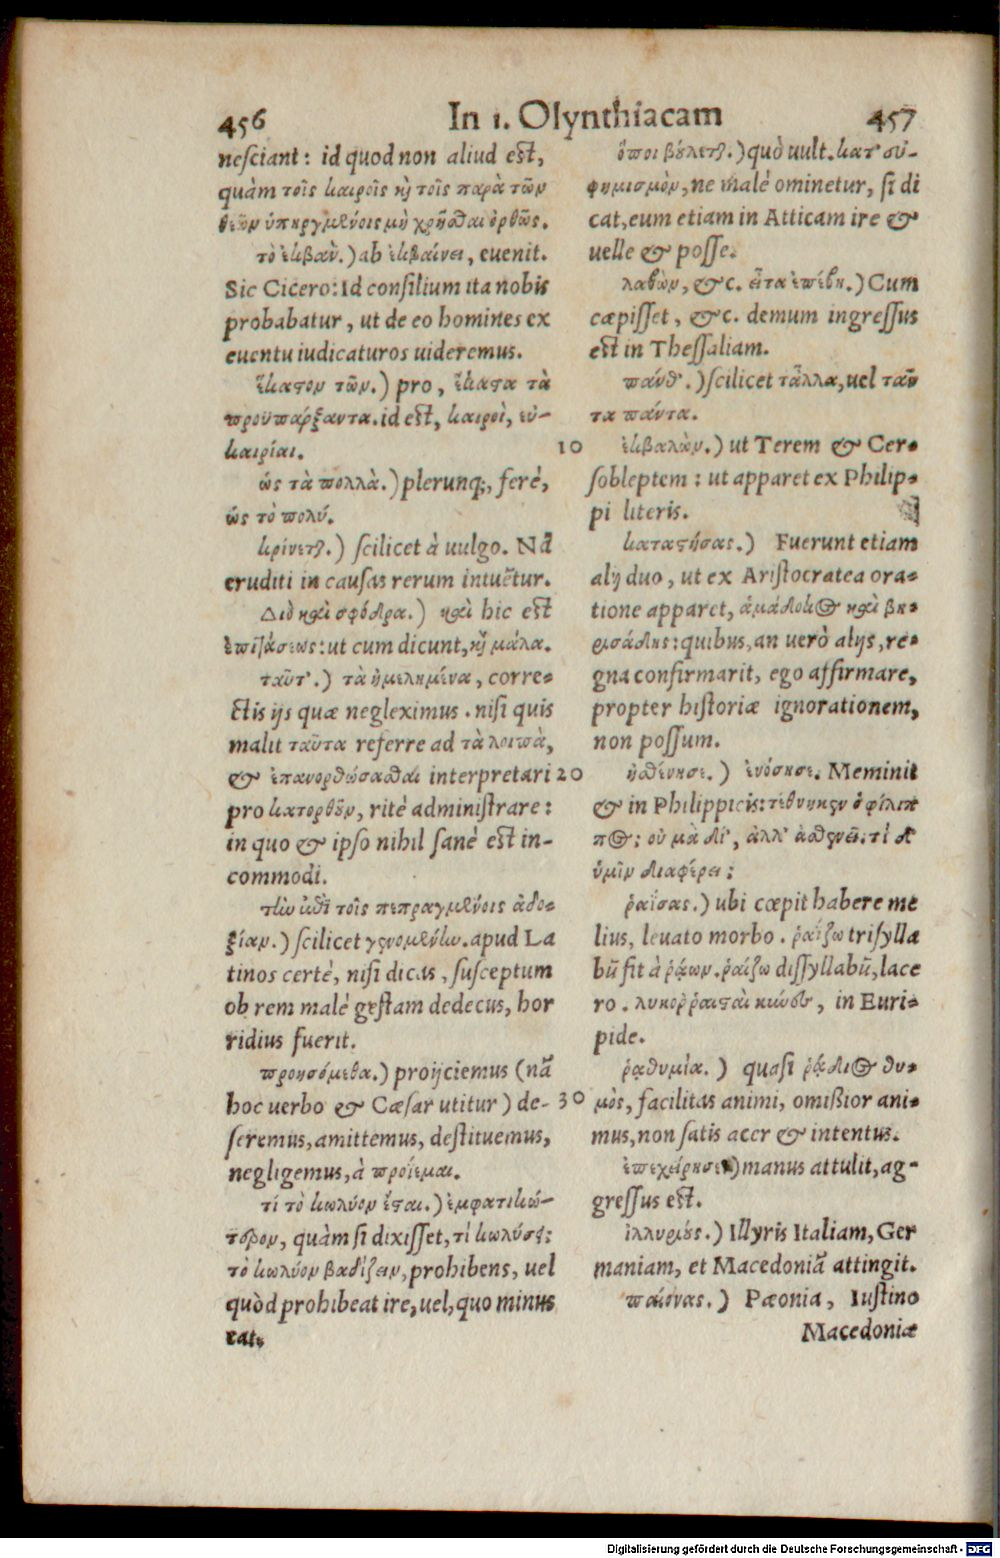 456
In 1. Olynthiacam
457
nesciant: id quod non aliud est,
quàm τοῖς καιροῖς κὶ τοῖς παρὰ τῶν
θεῶν ὑπηργμένοις μὴ χρῆσθαι ὀρθῶς.
τὸ ἐκβὰν.) ab ἐκβαίνει, euenit.
Sic Cicero: Id consilium ita nobis
probabatur, ut de eo homines ex
euentu iudicaturos uideremus.
ἕκαστον τῶν.) pro, ἕκαστα τὰ
προϋπάρξαντα. id est, καιροὶ, εὐ-
καιρίαι.
ὡς τὰ πολλὰ.) plerunq;, ferè,
ὡς τὸ πολύ.
κρίνεται.) scilicet à uulgo. Nā
eruditi in causas rerum intuētur.
Διὸ καὶ σφόδρα.) καὶ hic est
ἐπιτάσεως: ut cum dicunt, κὶ μάλα.
ταῦτ'.) τὰ ἠμελημένα, corre-
ctis ijs quæ negleximus. nisi quis
malit ταῦτα referre ad τὰ λοιπὰ,
& ἐπανορθώσασθαι interpretari
pro κατορθοῦν, ritè administrare:
in quo & ipso nihil sanè est in-
commodi.
τὴν ἐπὶ τοῖς πεπραγμένοις ἀδο-
ξίαν.) scilicet γενομένην. apud La
tinos certè, nisi dicas, susceptum
ob rem malè gestam dedecus, hor
ridius fuerit.
προησόμεθα.) proijciemus (nā
hoc uerbo & Cæsar utitur) de-
seremus, amittemus, destituemus,
negligemus, à προΐεμαι.
τί τὸ κωλύον ἔσται.) ἐμφατικώ-
τερον, quàm si dixisset, τί κωλύσει;
τὸ κωλύον βαδίζειν, prohibens, uel
quòd prohibeat ire, uel, quo minus
eat,
10
20
30
ὅποι βούλεται.) quò uult. κατ' εὐ-
φημισμὸν, ne malè ominetur, si di
cat, eum etiam in Atticam ire &
uelle & posse.
λαβὼν, &c. εἶτα ἐπέβη.) Cum
cœpisset, &c. demum ingressus
est in Thessaliam.
πάνθ'.) scilicet τἆλλα, uel ταῦ
τα πάντα.
ἐκβαλὼν.) ut Terem & Cer-
sobleptem: ut apparet ex Philip-
pi literis.
καταστήσας.) Fuerunt etiam
alij duo, ut ex Aristocratea ora-
tione apparet, ἀμάδοκος καὶ βη-
ρισάδης: quibus, an uerò alijs, re-
gna confirmarit, ego affirmare,
propter historiæ ignorationem,
non possum.
ἠσθένησε.) ἐνόσησε. Meminit
& in Philippicis: τέθνηκεν ὁ φίλιπ
πος; οὐ μὰ δί', ἀλλ' ἀσθενεῖ. τί δ'
ὑμῖν διαφέρει;
ῥαΐσας.) ubi cœpit habere me
lius, leuato morbo. ῥαΐζω trisylla
bū fit à ῥᾴων. ῥαίζω dissyllabū, lace
ro. λυκοῤῥαισταὶ κύνες, in Euri-
pide.
ῥᾳθυμία.) quasi ῥᾴδιος θυ-
μὸς, facilitas animi, omißior ani-
mus, non satis acer & intentus.
ἐπεχείρησεν) manus attulit, ag-
gressus est.
ἰλλυριούς.) Illyris Italiam, Ger
maniam, et Macedoniā attingit.
παίονας.) Pæonia, Iustino
Macedoniæ
Digitalisierung gefördert durch die Deutsche Forschungsgemeinschaft - DFG